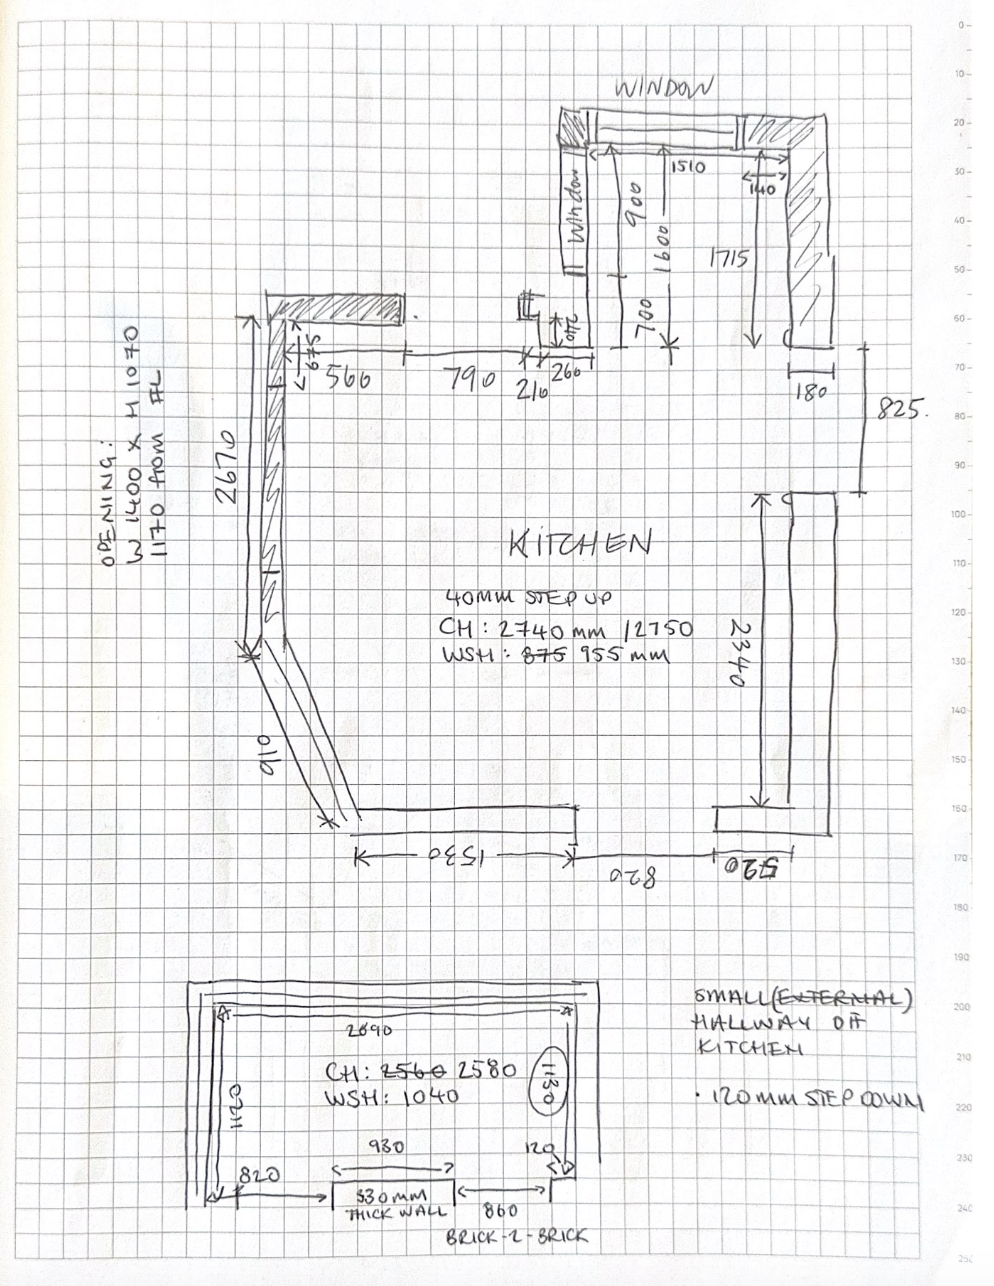 WINDOW
1510
140
Window
900
1600
1715
700
240
675
560
790
210
260
180
825.
OPENING:
W 1400 x H 1070
1170 from FL
2670
KITCHEN
40MM STEP UP
CH: 2740mm /2750
WSH: 875 955mm
2340
910
1530
820
520
2090
CH: 2560 2580
WSH: 1040
1120
1130
930
120
820
530mm
THICK WALL
860
BRICK-2-BRICK
SMALL (EXTERNAL)
HALLWAY Off
KITCHEN
· 120mm STEP DOWN
0
10
20
30
40
50
60
70
80
90
100
110
120
130
140
150
150
170
180
190
200
210
220
230
240
250